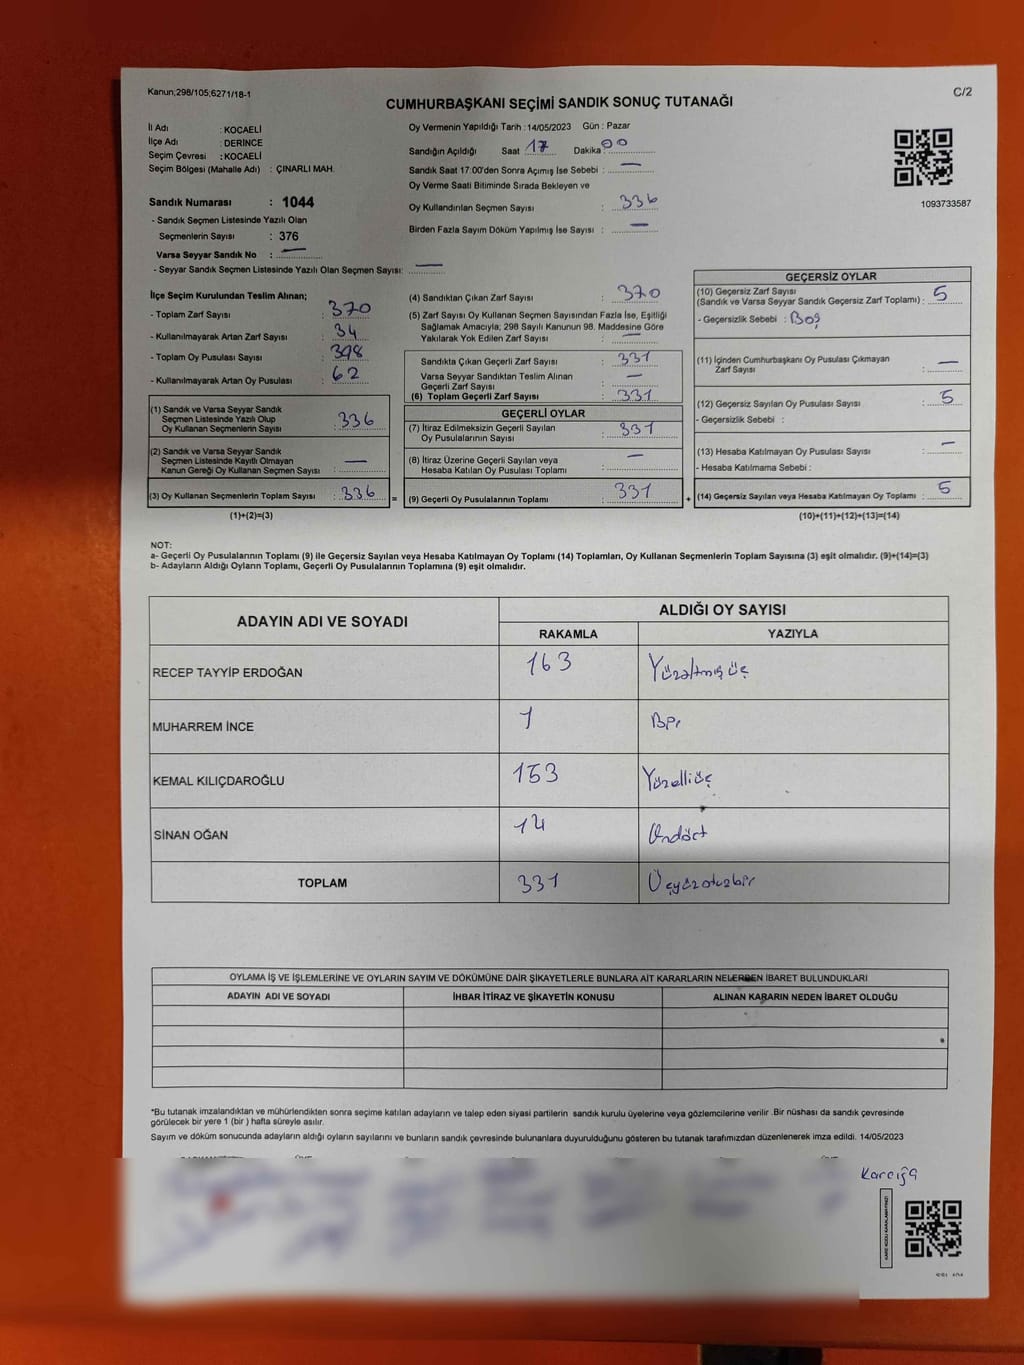 Kanun;298/105;6271/18-1
C/2
CUMHURBAŞKANI SEÇİMİ SANDIK SONUÇ TUTANAĞI
İl Adı : KOCAELİ
İlçe Adı : DERİNCE
Seçim Çevresi : KOCAELİ
Seçim Bölgesi (Mahalle Adı) : ÇINARLI MAH.
Sandık Numarası : 1044
- Sandık Seçmen Listesinde Yazılı Olan
Seçmenlerin Sayısı : 376
Varsa Seyyar Sandık No : —
- Seyyar Sandık Seçmen Listesinde Yazılı Olan Seçmen Sayısı: —
Oy Vermenin Yapıldığı Tarih :14/05/2023 Gün : Pazar
Sandığın Açıldığı Saat 17 Dakika 00
Sandık Saat 17:00'den Sonra Açımış İse Sebebi : —
Oy Verme Saati Bitiminde Sırada Bekleyen ve
Oy Kullandırılan Seçmen Sayısı : 336
Birden Fazla Sayım Döküm Yapılmış İse Sayısı : —
1093733587
İlçe Seçim Kurulundan Teslim Alınan;
- Toplam Zarf Sayısı : 370
- Kullanılmayarak Artan Zarf Sayısı : 34
- Toplam Oy Pusulası Sayısı : 398
- Kullanılmayarak Artan Oy Pusulası : 62
(1) Sandık ve Varsa Seyyar Sandık
Seçmen Listesinde Yazılı Olup
Oy Kullanan Seçmenlerin Sayısı : 336
(2) Sandık ve Varsa Seyyar Sandık
Seçmen Listesinde Kayıtlı Olmayan
Kanun Gereği Oy Kullanan Seçmen Sayısı : —
(3) Oy Kullanan Seçmenlerin Toplam Sayısı : 336 =
(1)+(2)=(3)
(4) Sandıktan Çıkan Zarf Sayısı : 370
(5) Zarf Sayısı Oy Kullanan Seçmen Sayısından Fazla İse, Eşitliği
Sağlamak Amacıyla; 298 Sayılı Kanunun 98. Maddesine Göre
Yakılarak Yok Edilen Zarf Sayısı : —
Sandıkta Çıkan Geçerli Zarf Sayısı : 331
Varsa Seyyar Sandıktan Teslim Alınan
Geçerli Zarf Sayısı : —
(6) Toplam Geçerli Zarf Sayısı : 331
GEÇERLİ OYLAR
(7) İtiraz Edilmeksizin Geçerli Sayılan
Oy Pusulalarının Sayısı : 331
(8) İtiraz Üzerine Geçerli Sayılan veya
Hesaba Katılan Oy Pusulası Toplamı : —
(9) Geçerli Oy Pusulalarının Toplamı : 331 +
GEÇERSİZ OYLAR
(10) Geçersiz Zarf Sayısı
(Sandık ve Varsa Seyyar Sandık Geçersiz Zarf Toplamı) : 5
- Geçersizlik Sebebi : Boş
(11) İçinden Cumhurbaşkanı Oy Pusulası Çıkmayan
Zarf Sayısı : —
(12) Geçersiz Sayılan Oy Pusulası Sayısı : 5
- Geçersizlik Sebebi :
(13) Hesaba Katılmayan Oy Pusulası Sayısı : —
- Hesaba Katılmama Sebebi :
(14) Geçersiz Sayılan veya Hesaba Katılmayan Oy Toplamı : 5
(10)+(11)+(12)+(13)=(14)
NOT:
a- Geçerli Oy Pusulalarının Toplamı (9) ile Geçersiz Sayılan veya Hesaba Katılmayan Oy Toplamı (14) Toplamları, Oy Kullanan Seçmenlerin Toplam Sayısına (3) eşit olmalıdır. (9)+(14)=(3)
b- Adayların Aldığı Oyların Toplamı, Geçerli Oy Pusulalarının Toplamına (9) eşit olmalıdır.
ADAYIN ADI VE SOYADI ALDIĞI OY SAYISI
RAKAMLA YAZIYLA
RECEP TAYYİP ERDOĞAN 163 Yüzaltmışüç
MUHARREM İNCE 1 Bir
KEMAL KILIÇDAROĞLU 153 Yüzelliüç
SİNAN OĞAN 14 Ondört
TOPLAM 331 Üçyüzotuzbir
OYLAMA İŞ VE İŞLEMLERİNE VE OYLARIN SAYIM VE DÖKÜMÜNE DAİR ŞİKAYETLERLE BUNLARA AİT KARARLARIN NELERDEN İBARET BULUNDUKLARI
ADAYIN ADI VE SOYADI İHBAR İTİRAZ VE ŞİKAYETİN KONUSU ALINAN KARARIN NEDEN İBARET OLDUĞU
*Bu tutanak imzalandıktan ve mühürlendikten sonra seçime katılan adayların ve talep eden siyasi partilerin sandık kurulu üyelerine veya gözlemcilerine verilir .Bir nüshası da sandık çevresinde
görülecek bir yere 1 (bir ) hafta süreyle asılır.
Sayım ve döküm sonucunda adayların aldığı oyların sayılarını ve bunların sandık çevresinde bulunanlara duyurulduğunu gösteren bu tutanak tarafımızdan düzenlenerek imza edildi. 14/05/2023